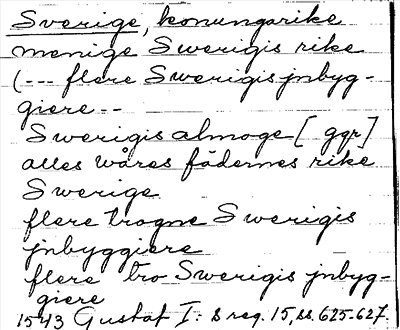 Sverige, konungarike
menige Swerigis rike
(--- flere Swerigis jnbyg-
giere --
Swerigis almoge [ggr]
alles wåres fädernes rike
Swerige
flere trogne Swerigis
jnbyggiere
flere tro Swerigis jnbyg-
giere
1543 Gustaf I: s reg. 15, ss. 625-627.